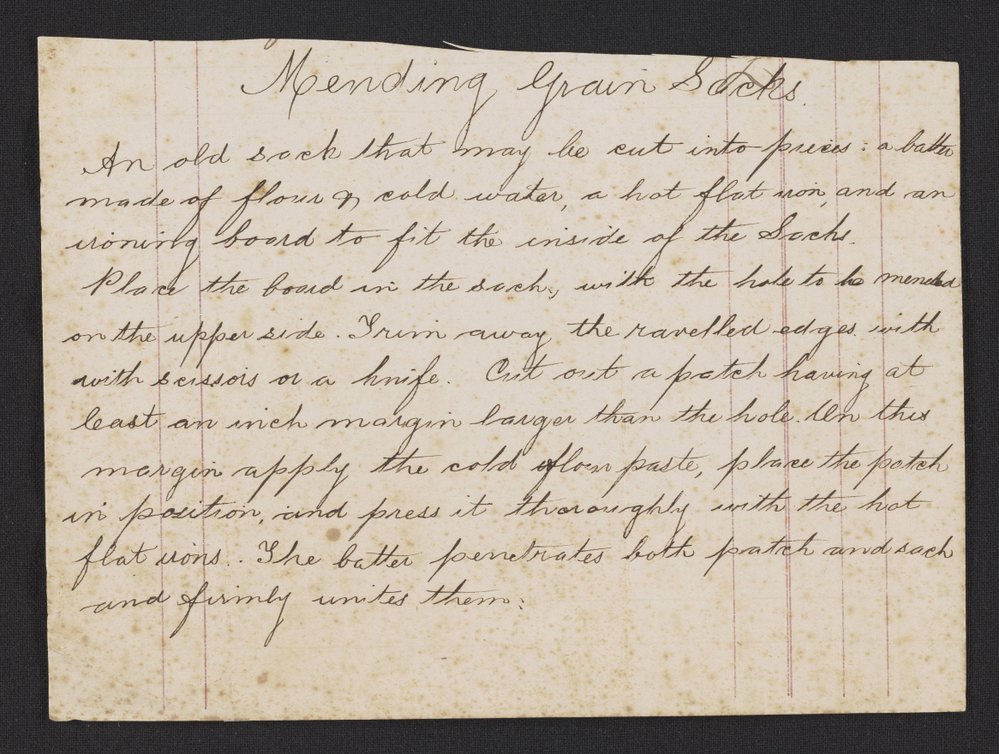 Mending Grain Sacks.
An old sack that may be cut into pieces: a batter
made of flour & cold water, a hot flat iron, and an
ironing board to fit the inside of the Sacks.
Place the board in the sack, with the hole to be mended
on the upper side. Trim away the ravelled edges with
with scissors or a knife. Cut out a patch having at
least an inch margin larger than the hole. On this
margin apply the cold flour paste, place the patch
in position, and press it thoroughly with the hot
flat irons. The batter penetrates both patch and sack
and firmly unites them.